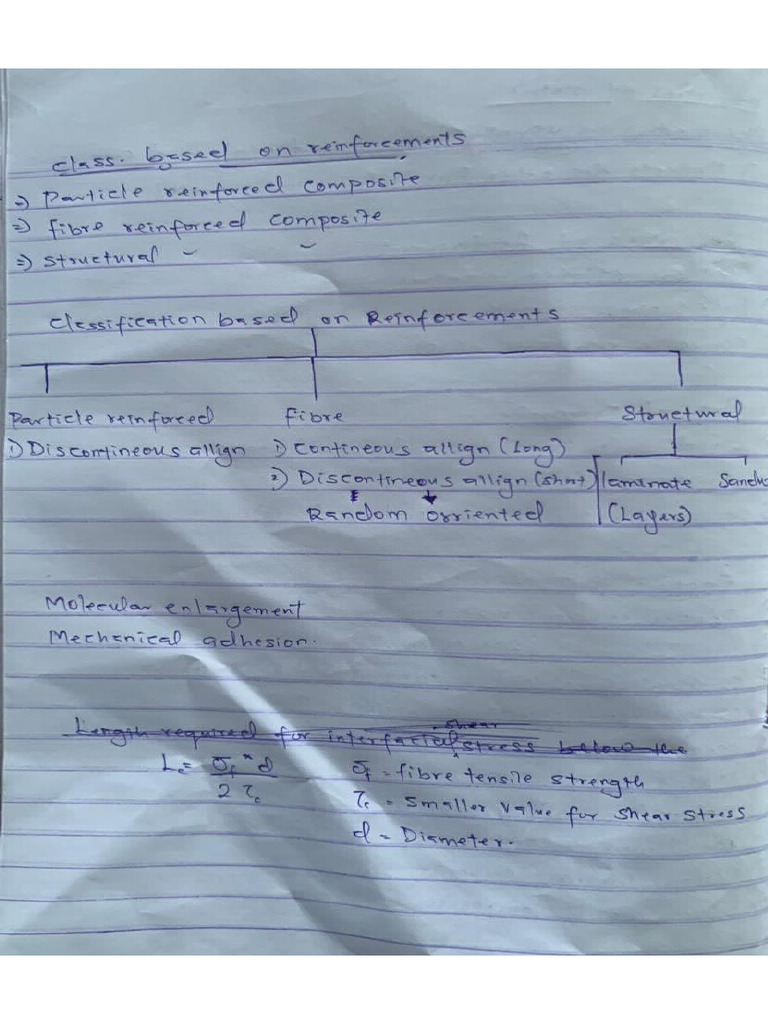 class. based on reinforcements
⇒ Particle reinforced composite
⇒ fibre reinforced composite
⇒ structural ~ ~
Classification based on Reinforcements
Particle reinforced Fibre Structural
1) Discontineous allign 1) Contineous allign (Long)
2) Discontineous allign (short) laminate Sandw
Random orriented (Layers)
Molecular enlargement
Mechanical adhesion.
Length required for interfacial shear stress below the
Lc = σf* d / 2 τc
σf = fibre tensile strength
τc = smaller value for shear stress
d = Diameter.